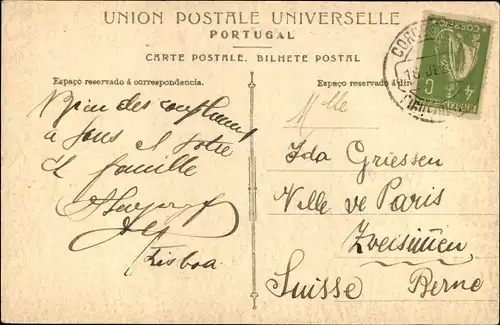 UNION POSTALE UNIVERSELLE
PORTUGAL
CARTE POSTALE. BILHETE POSTAL
Espaço reservado á correspondencia.
Espaço reservado á
CORREIO
4 C
Bien des
à vous et votre
famille
Lisboa
Mlle
Ida Griessen
Ville de Paris
Zweisimmen
Suisse Berne